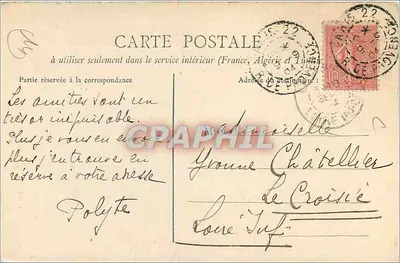 CARTE POSTALE
à utiliser seulement dans le service intérieur (France, Algérie et Tunisie)
Partie réservée à la correspondance
Adresse du destinataire
Les amitiés sont un
trésor inépuisable.
Plus je vous en envoie
plus j'en trouve en
réserve à votre adresse
Polyte
Mademoiselle
Yvonne Châtellier
Le Croisic
Loire Inf.
PARIS 22
R. DE PROVENCE
CARTAPHIL